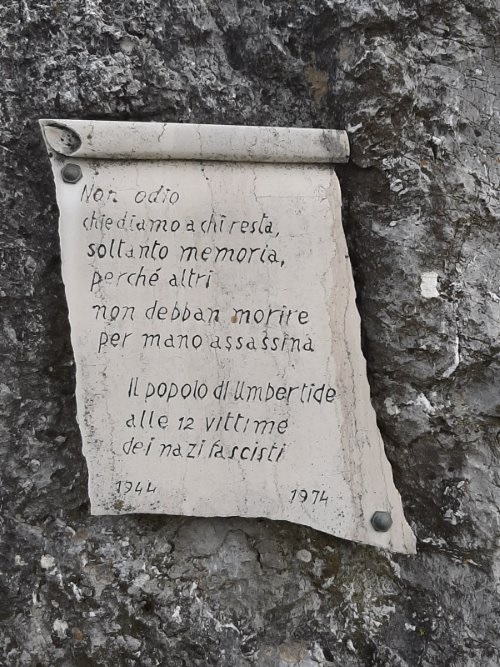 Non odio
chiediamo a chi resta,
soltanto memoria,
perché altri
non debban morire
per mano assassina
Il popolo di Umbertide
alle 12 vittime
dei nazifascisti
1944 1974